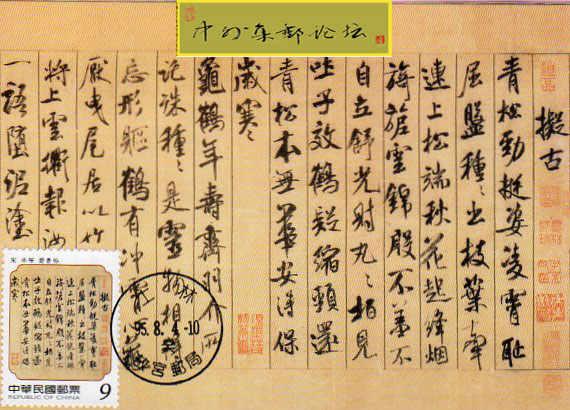 中外集郵论坛
擬古
青松勁挺姿凌霄恥
屈盤種〻出枝葉牽
連上松端秋花起絳烟
旖旎雲錦殷不羞不
自立舒光射丸〻柏見
吐子效鶴疑縮頸還
青松本無華安得保
歲寒〻
龜鶴年壽齊羽介所
託殊種〻是靈物相
忘形軀鶴有沖霄
厭曳尾居以竹
將上雲衢報汝
一語墮泥塗
宋 米芾 蜀素帖
擬古
中華民國郵票
REPUBLIC OF CHINA
9
95.8.4.-10
宮郵局